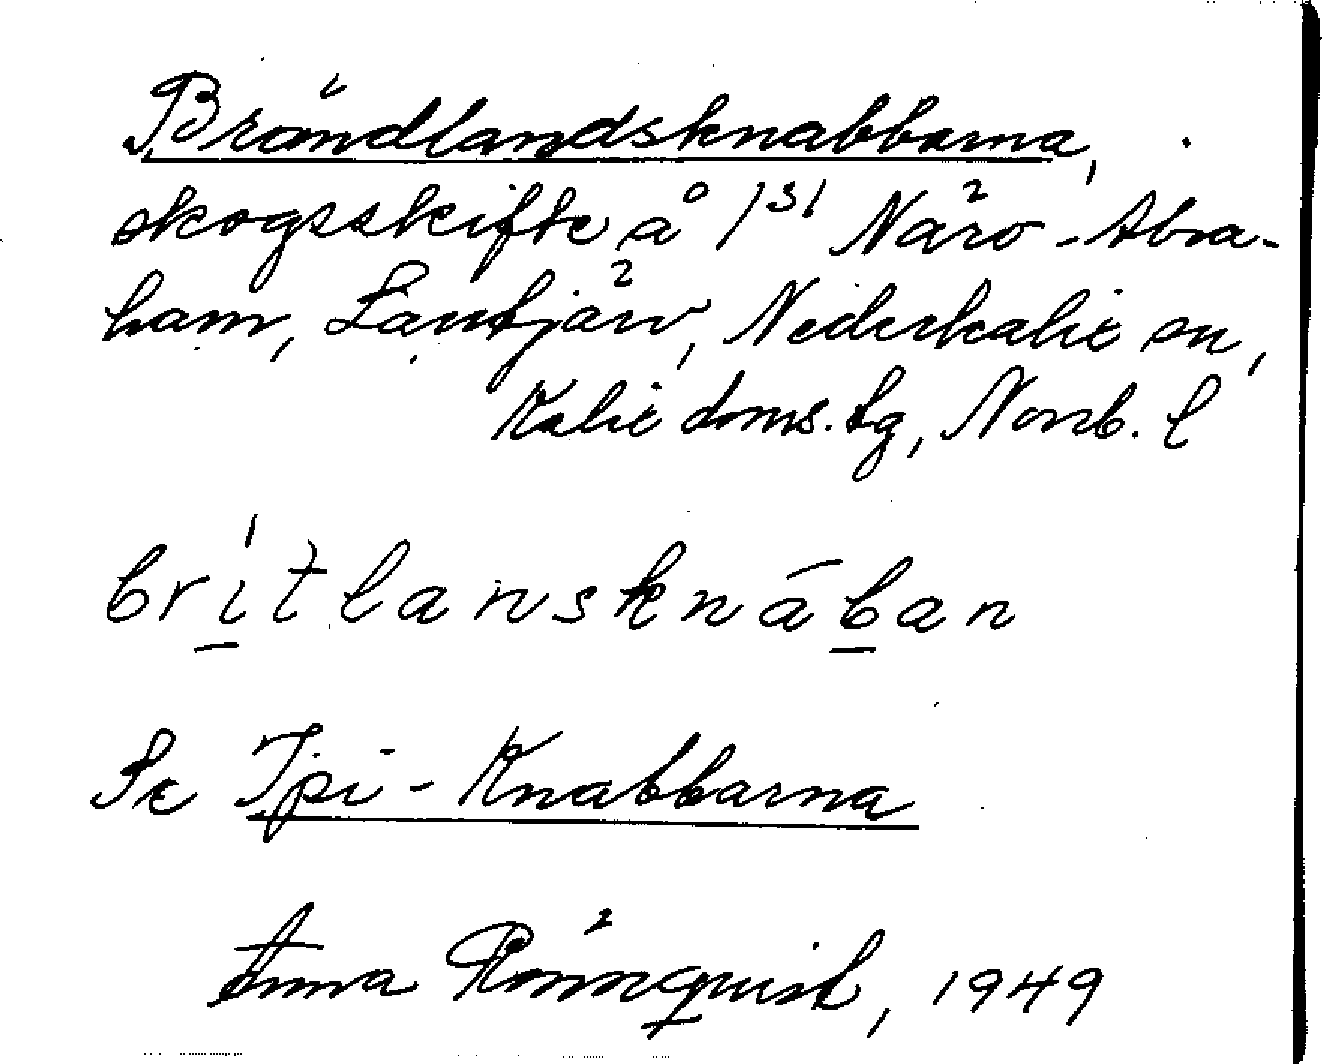 Brändlandsknabbarna,
skogsskifte å 1³¹ När⁠o-Abra-
ham, Lantjärv, Nederkalix sn,
Kalix doms.tg, Norrb. l
britlansknāban
Se Ipi-Knabbarna
Anna Rönnquist, 1949